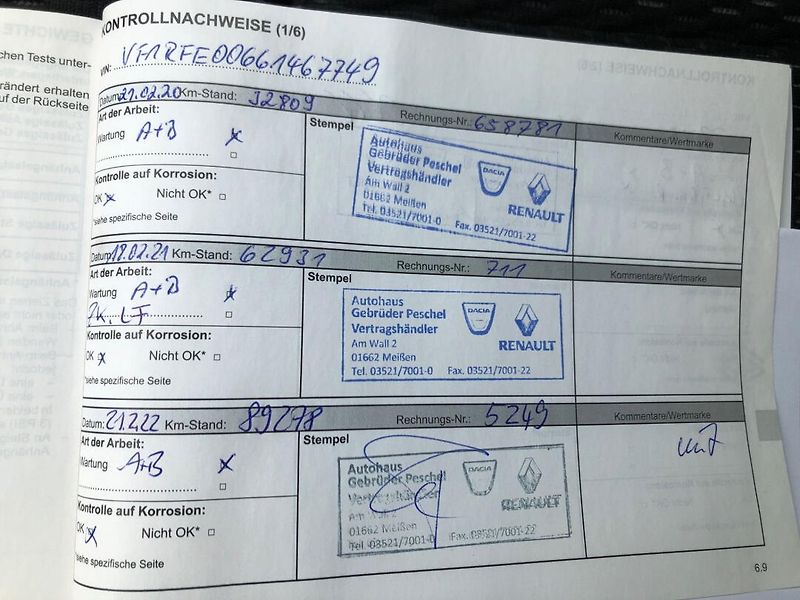 KONTROLLNACHWEISE (1/6)
chen Tests unter-
rändert erhalten
uf der Rückseite
VIN: VF1RFE00661467749
Datum: 21.02.20 Km-Stand: 32809 Rechnungs-Nr.: 658781 Kommentare/Wertmarke
Art der Arbeit:
Wartung A+B x
Stempel
Autohaus
Gebrüder Peschel
Vertragshändler
Am Wall 2
01662 Meißen
Tel. 03521/7001-0 Fax. 03521/7001-22
DACIA
RENAULT
Kontrolle auf Korrosion:
OK x Nicht OK* □
*siehe spezifische Seite
Datum: 18.02.21 Km-Stand: 62931 Rechnungs-Nr.: 711 Kommentare/Wertmarke
Art der Arbeit:
Wartung A+B x
Stempel
Autohaus
Gebrüder Peschel
Vertragshändler
Am Wall 2
01662 Meißen
Tel. 03521/7001-0 Fax. 03521/7001-22
DACIA
RENAULT
Kontrolle auf Korrosion:
OK x Nicht OK* □
*siehe spezifische Seite
Datum: 21.2.22 Km-Stand: 89278 Rechnungs-Nr.: 5249 Kommentare/Wertmarke
Art der Arbeit:
Wartung A+B x
Stempel
Autohaus
Gebrüder Peschel
Vertragshändler
Am Wall 2
01662 Meißen
Tel. 03521/7001-0 Fax. 03521/7001-22
DACIA
RENAULT
Kontrolle auf Korrosion:
OK x Nicht OK* □
*siehe spezifische Seite
6.9